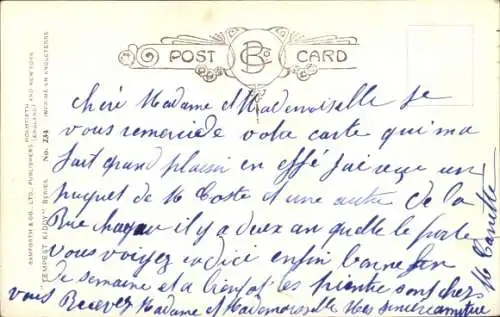 POST CARD
BAMFORTH & CO., LTD., PUBLISHERS (ENGLAND) HOLMFIRTH AND NEW YORK
"TEMPEST KIDDY" SERIES No. 234 IMPRIMÉ EN ANGLETERRE
chéré Madame et Mademoiselle Je
vous remercie de votre carte qui ma
fait grand plaisir en effé j'ai reçu un
paquet de M Coste et une autre de la
Rue il y a deux an quelle le porte
vous voyez enfin bonne fin
de semaine et a bientot les sont chers
vous Recevez Madame et Mademoiselle Mes sincère amitue
M Camille